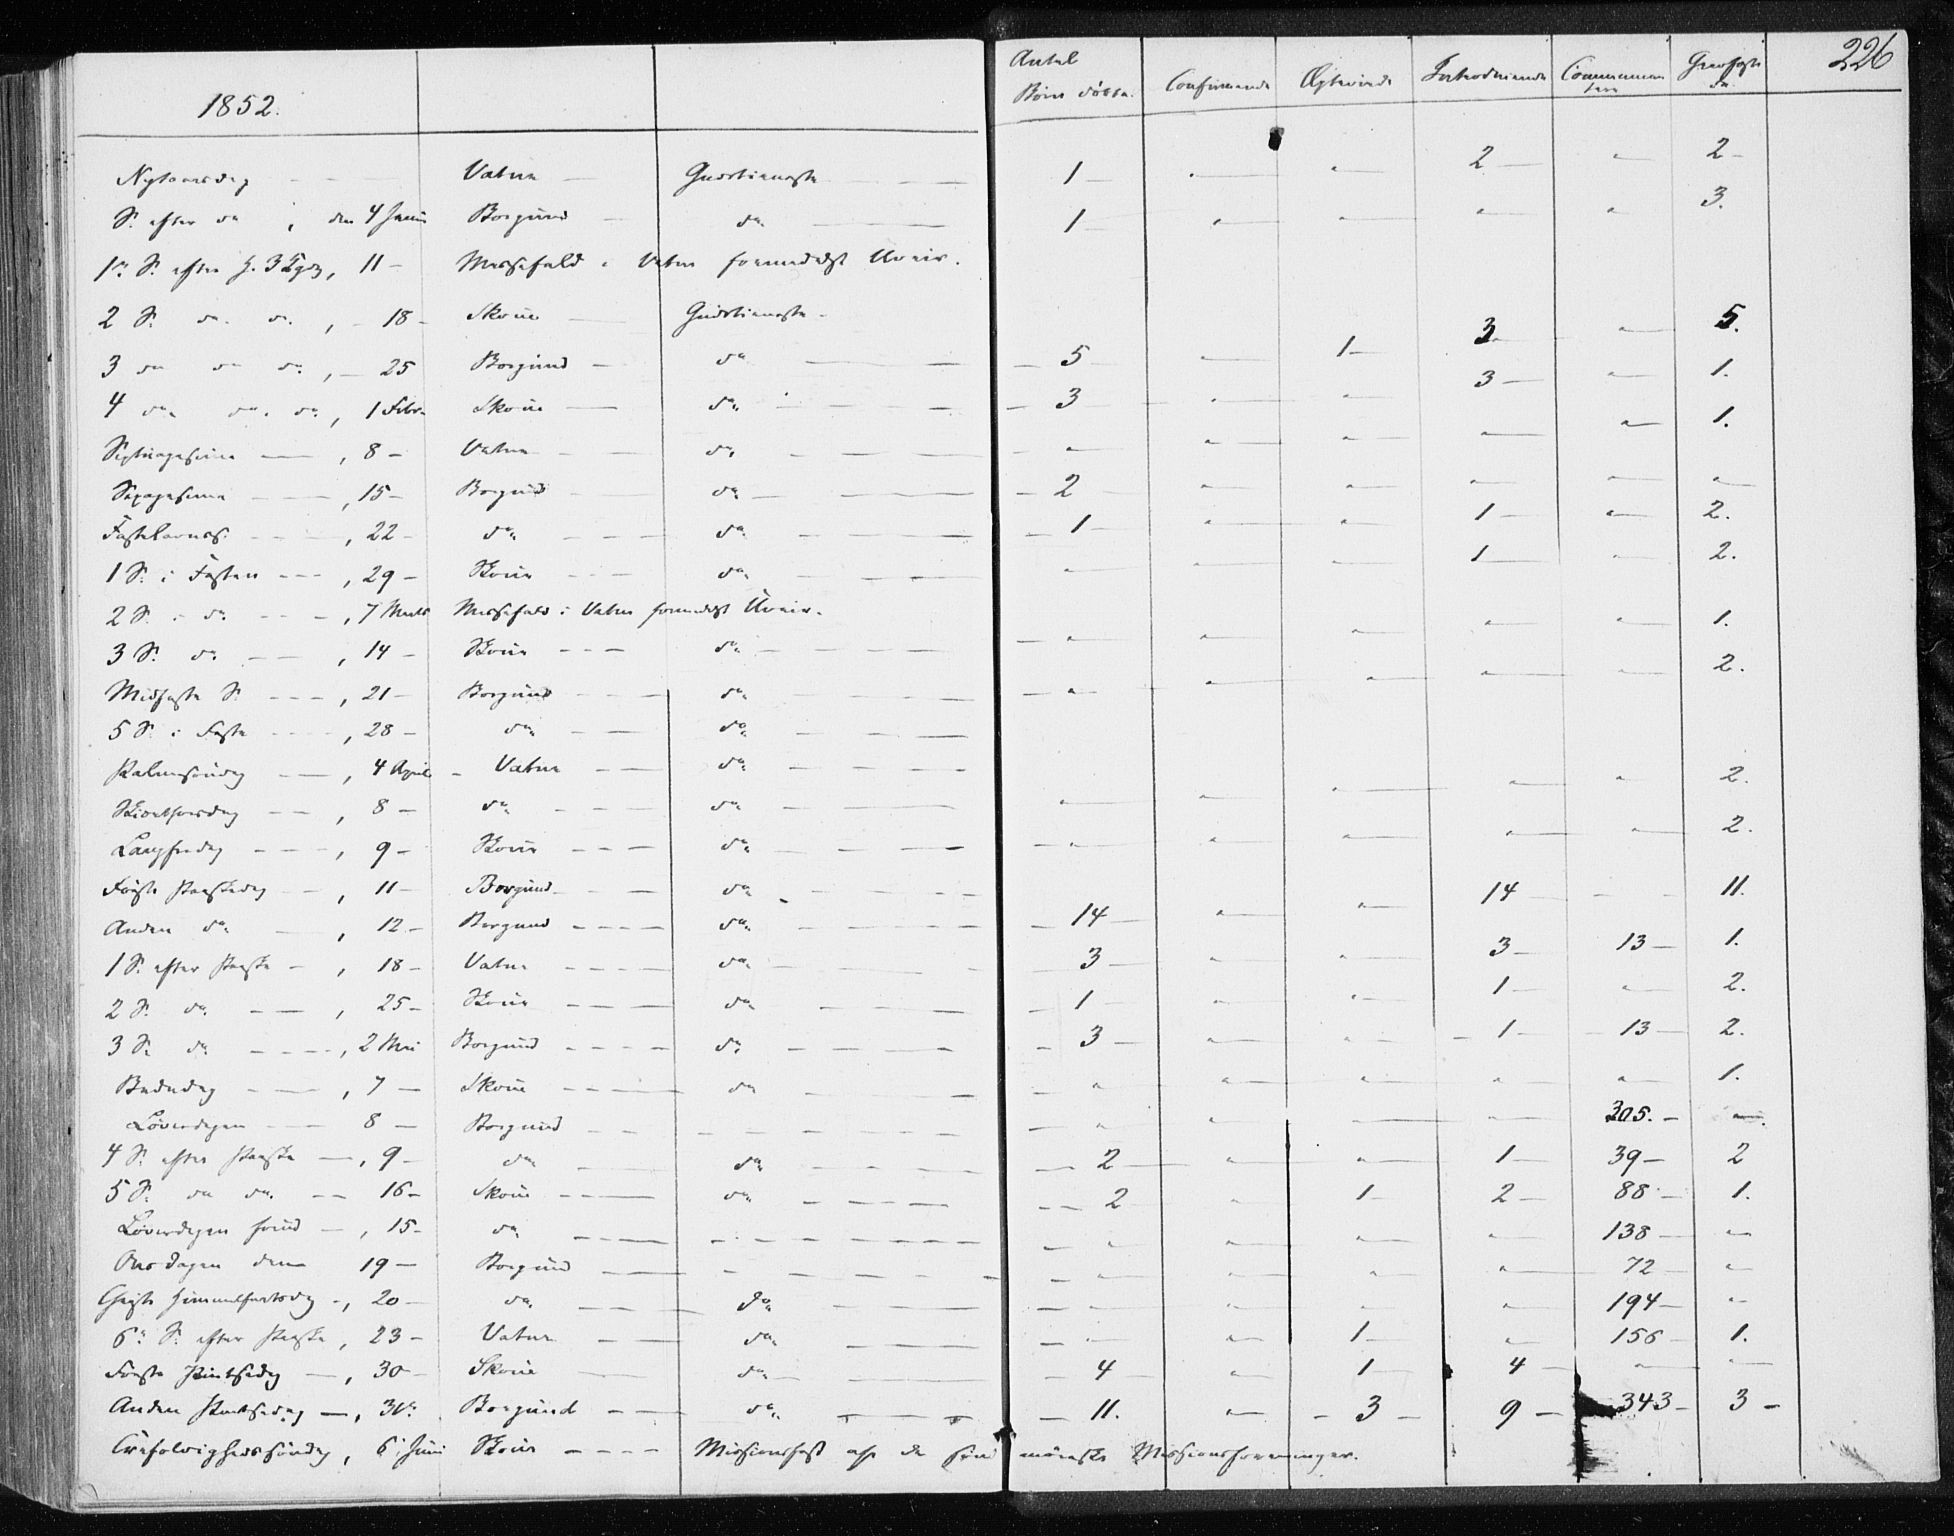 226
1852.
Antal Børn døbte. Confirmerede Ægteviede Introducerede Communicanter Gravfæstede
Nytaarsdag — Vatne — Gudstieneste — 1 — " — " — 2 — " — 2 —
S. efter do, den 4 Januar Borgund — do — 1 — " — " — " — " — 3.
1ste S. efter H. 3 Kgdg, 11 — Messefald i Vatne formedelst Uveir.
2 S. do. do., — 18 — Skoue — Gudstieneste —
3 do do do., — 25 Borgund — do — 5 — " — 1 — 3 — " — 5.
4 do. do. do., 1 Febr. Skoue — do. — 3 — " — " — 3 — " — 1.
Septuagesima —, 8 — Vatne — do. — " — " — " — " — " — 1.
Sexagesima —, 15 — Borgund — do. — 2 — " — " — " — " — "
Fastelavns S. —, 22 — do. — do. — 1 — " — " — 1 — " — 2.
1 S. i Fasten —, 29 — Skoue — do. — " — " — " — 1 — " — 2.
2 S. i do. —, 7 Marts Messefald i Vatne formedelst Uveir.
3 S. do. —, 14 — Skoue — do. — " — " — " — " — " — 1.
Midfaste S. —, 21 — Borgund — do. — " — " — " — " — " — 2.
5 S. i Faste —, 28 — do. — do. —
Palmesøndag —, 4 April — Vatne — do. —
Skiærthorsdag —, 8 — do. — do. — " — " — " — " — " — 2.
Langfredag —, 9 — Skoue — do. — " — " — " — " — " — 2.
Første Paaskedag —, 11 — Borgund — do. — 14 — " — " — 14 — — 11.
Anden do. —, 12 — Borgund — do. — 3 — " — " — 3 — 13 — 1.
1 S. efter Paaske —, 18 — Vatne — do. — 1 — " — " — 1 — " — 2.
2 S. do. —, 25 — Skoue — do. — 3 — " — " — 1 — 13 — 2.
3 S. do. —, 2 Mai Borgund — do. — " — " — " — " — " — 1.
Bededag —, 7 — Skoue — do —
Løverdagen — 8 — Borgund — " — " — 305. —
4 S. efter Paaske —, 9 — do. — do. — 2 — " — " — 1 — 39 — 2
5 S. do do. — 16 — Skoue — do. — 2 — " — 1 — 2 — 88 — 1.
Løverdagen forud —, 15 — do. — " — " — " — " — 138 — "
Onsdagen den 19 — Borgund — " — " — " — " — 72 — "
Christi Himmelfartsdag —, 20 — do. — do. — " — " — " — " — 194 — "
6te S. efter Paaske, 23 — Vatne — do. — " — " — 1 — " — 156 — 1.
Første Pintsedag —, 30 — Skoue — do. — 4 — " — 1 — 4 — " — "
Anden Pintsedag —, 31te Borgund — do. — 11. — " — 3 — 9 — 343 — 3 —
Trefoldighedssøndag, 6te Juni Skoue — Missionsfest af de søndmørske Missionsforeninger.